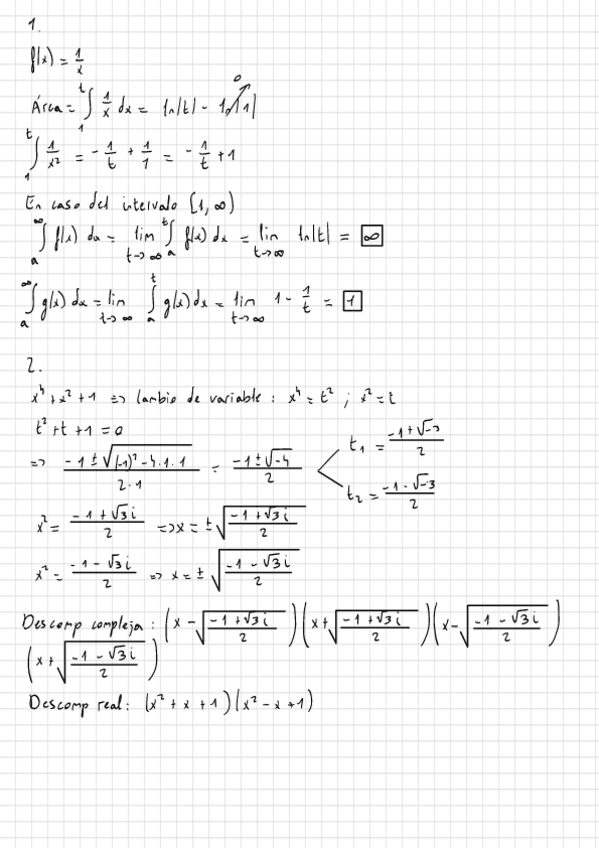 1.
f(x) = 1/x
Área = ∫₁ᵗ 1/x dx = ln|t| - ln|1| → 0
∫₁ᵗ 1/x² = -1/t + 1/1 = -1/t + 1
En caso del intervalo [1, ∞)
∫ₐ^∞ f(x) dx = lim t→∞ ∫ₐᵗ f(x) dx = lim t→∞ ln|t| = ∞
∫ₐ^∞ g(x) dx = lim t→∞ ∫ₐᵗ g(x) dx = lim t→∞ 1 - 1/t = 1
2.
x⁴ + x² + 1 => Cambio de variable : x⁴ = t² ; x² = t
t² + t + 1 = 0
=> (-1 ± √((-1)² - 4·1·1))/(2·1) = (-1 ± √-4)/2
t₁ = (-1 + √-3)/2
t₂ = (-1 - √-3)/2
x² = (-1 + √3 i)/2 => x = ± √((-1 + √3 i)/2)
x² = (-1 - √3 i)/2 => x = ± √((-1 - √3 i)/2)
Descomp compleja : (x - √((-1 + √3 i)/2)) (x + √((-1 + √3 i)/2)) (x - √((-1 - √3 i)/2))
(x + √((-1 - √3 i)/2))
Descomp real : (x² + x + 1)(x² - x + 1)